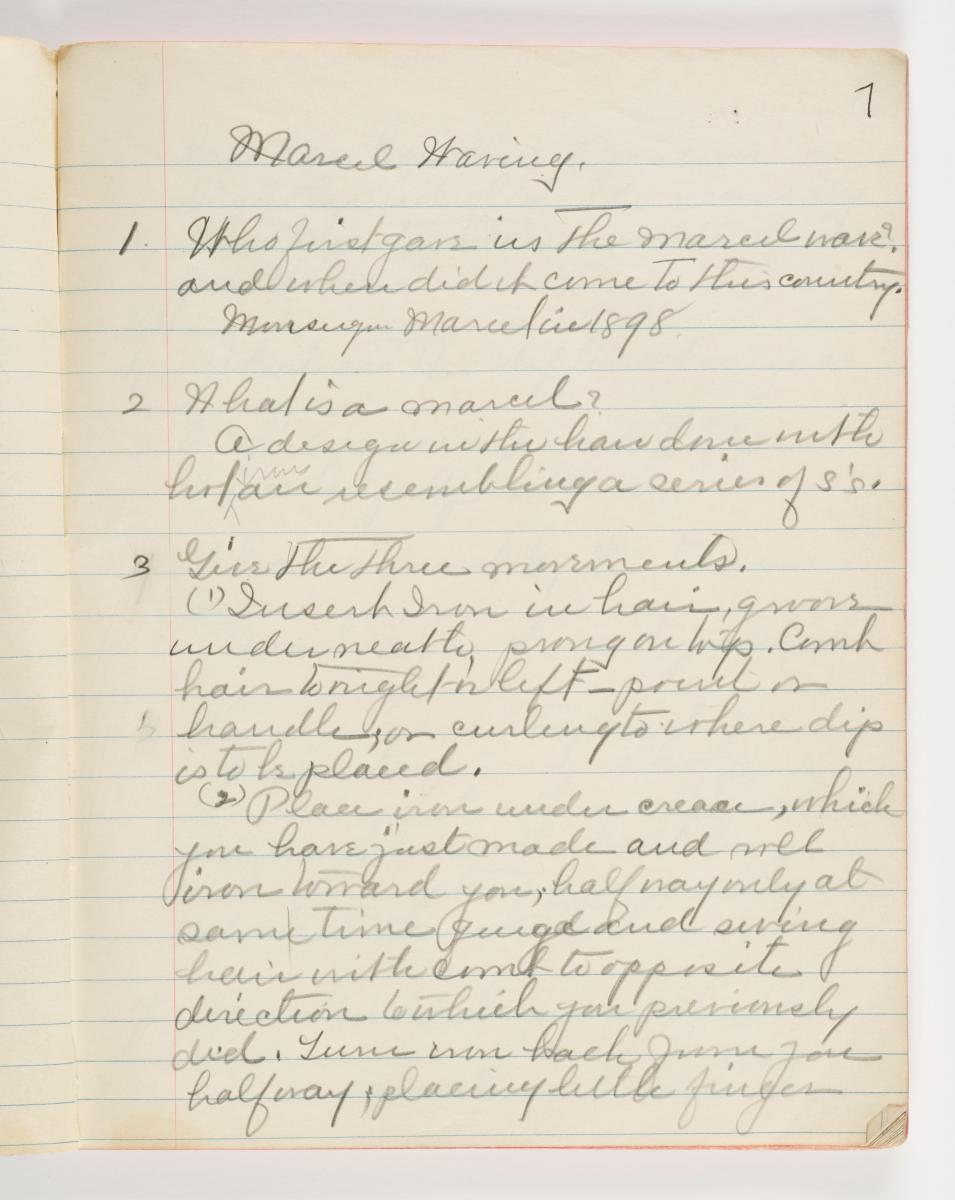 7
Marcel Waving.
1. Who first gave us the marcel wave?
and when did it come to this country.
Marcel in 1898.
2 What is a marcel?
A design in the hair done with
irons
hot air resembling a series of s's.
3 Give the three movements.
(1) Insert Iron in hair, groove
underneath, prong on top. Comb
hair to right or left - point or
handle, or curling to where dip
is to be placed.
(2) Place iron under crease, which
you have just made and roll
iron toward you, half way only at
same time and swing
hair with comb to opposite
direction to which you previously
did. Turn iron back from you
half way, placing little finger